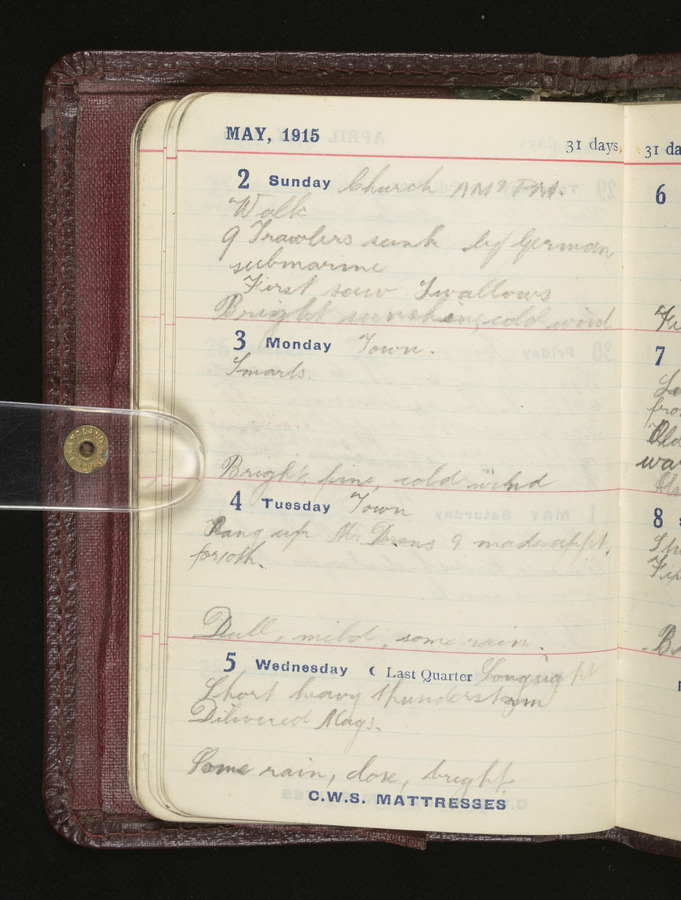 MAY, 1915 31 days,
2 Sunday Church AM & P.M.
Walk
9 Trawlers sunk by German
submarine
First saw Swallows
Bright sunshine, cold wind
3 Monday Town.
Smarts.
Bright, fine, cold wind
4 Tuesday Town
Rang up Mr & made appt.
for 10th.
Dull, mild, some rain.
5 Wednesday ☾ Last Quarter
Short heavy thunderstorm
Dilivered Mags.
Some rain, close, bright
C.W.S. MATTRESSES
31 da
6
7
8